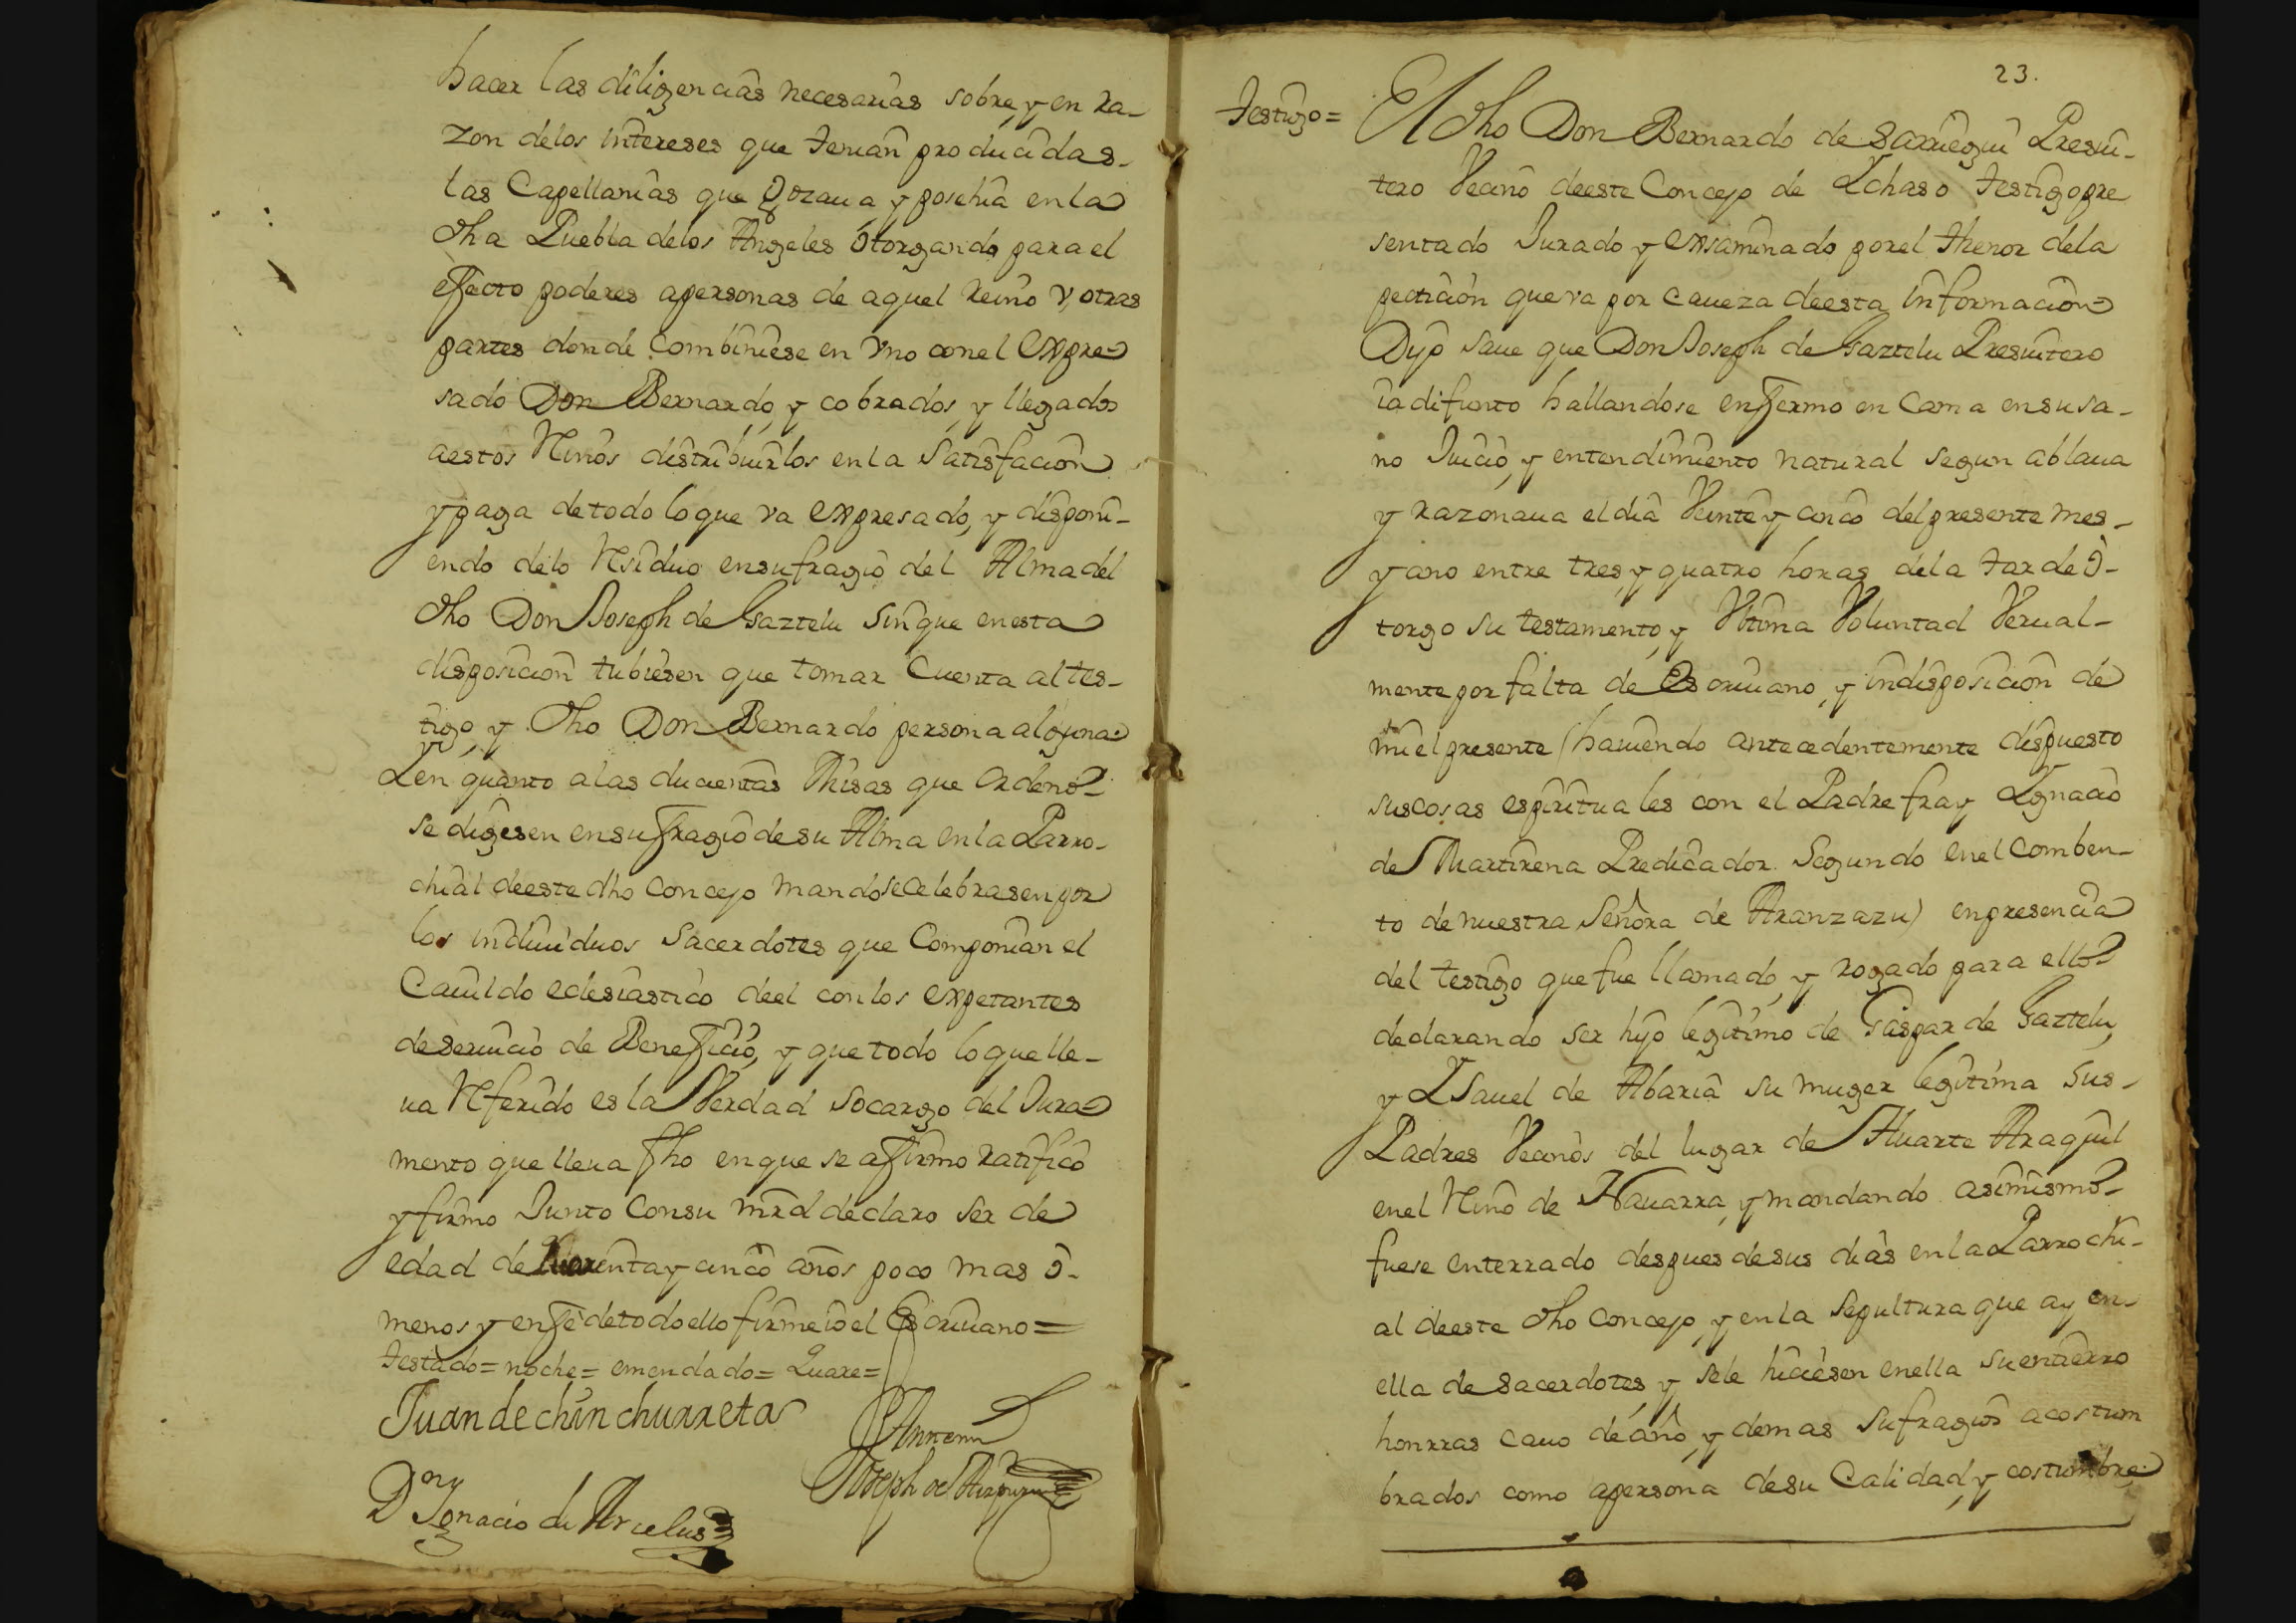 hacer las diligencias necesarias sobre, y en ra-
zon delos intereses que tenian producidas-
las Capellanias que Gozaua, y posehia en la
dha Puebla delos Angeles otorgando para el
efecto poderes apersonas de aquel Reino y, otras
partes donde combiniese en vno con el expre-
sado Don Bernardo, y cobrados, y llegados
aestos Rinos distribuirlos en la Satisfacion
y paga de todo lo que va expresado, y disponi-
endo delo Residuo ensufragio del Alma del
dho Don Joseph de Gaztelu sin que en esta
disposicion tubiesen que tomar Cuenta al tes-
tigo, y dho Don Bernardo persona alguna
Y en quanto alas ducientas Misas que ordeno-
se digesen ensufragio de su Alma en la Parro-
chial deeste dho concejo mando se celebrasen por
los indiuiduos sacerdotes que Componian el
Cauildo eclesiastico deel con los expetantes
deseruicio de Beneficio, y que todo lo que lle-
ua Referido es la Verdad socargo del Jura-
mento que lleua fho en que se afirmo ratifico
y firmo Junto Consu mrd declaro ser de
edad de quarenta y cinco años poco mas o-
menos y enfe de todo ello firme io el Escriuano=
Testado= noche= emendado= Quare=
Juan de chinchurreta
Antemi
Joseph de Aizpuru
Dn Ignacio de Arcelus
23.
Testigo=
El dho Don Bernardo de Sarriegui Presui-
tero Vecino deeste Concejo de Ychaso testigo pre
sentado Jurado y exsaminado por el thenor dela
pecticion que va por caueza deesta informacion
Dijo saue que Don Joseph de Gaztelu Presuitero
ia difunto hallandose enfermo en cama ensusa-
no Juicio, y entendimiento natural segun ablaua
y razonaua el dia Veinte y cinco del presente mes-
y ano entre tres, y quatro horas dela tarde o-
torgo su testamento, y Vltima Voluntad Verual-
mente por falta de Escriuano, y indisposicion de
mi el presente (hauiendo antecedentemente dispuesto
sus cosas espirituales con el Padre fray Ygnacio
de Martirena Predicador Segundo en el Comben-
to de nuestra Señora de Aranzazu) enpresencia
del testigo que fue llamado, y rogado para ello
declarando ser hijo legitimo de Gaspar de Gaztelu,
y Ysauel de Abaria su muger legitima sus-
Padres Vecinos del lugar de Huarte Araquil
enel Rino de Nauarra, y mandando asimismo-
fuese enterrado despues de sus dias en la Parrochi-
al deeste dho concejo, y en la sepultura que ay en-
ella de sacerdotes, y se le hiciesen enella su entierro
honrras cauo de año, y demas sufragios acostum
brados como apersona de su Calidad, y costumbre